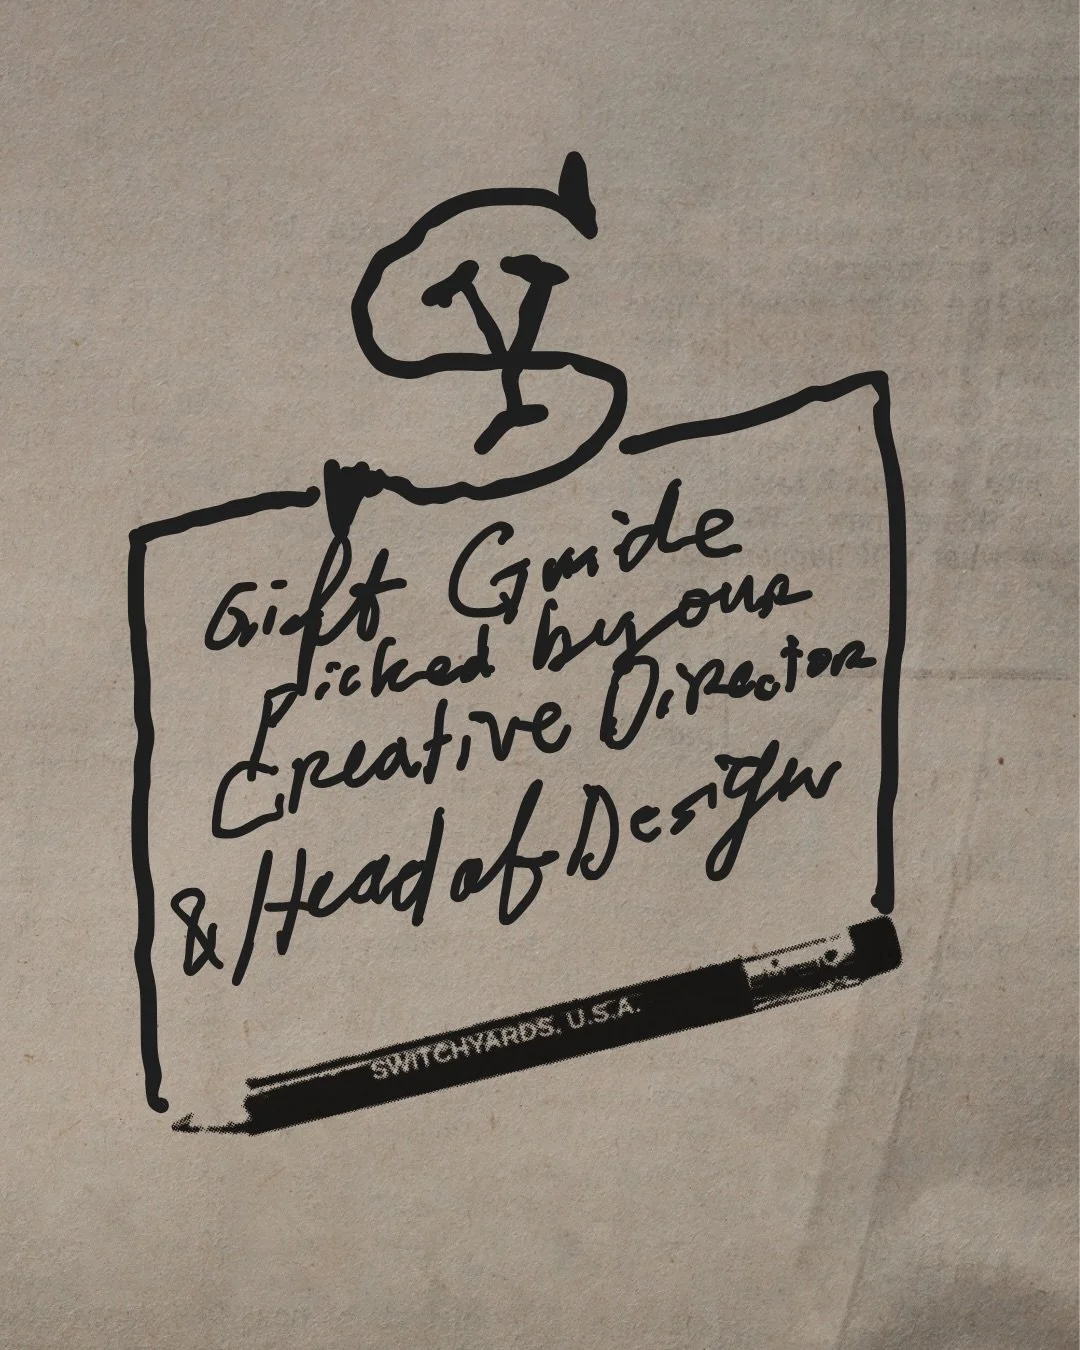 SY
Gift Guide
picked by our
Creative Director
& Head of Design
SWITCHYARDS. U.S.A.